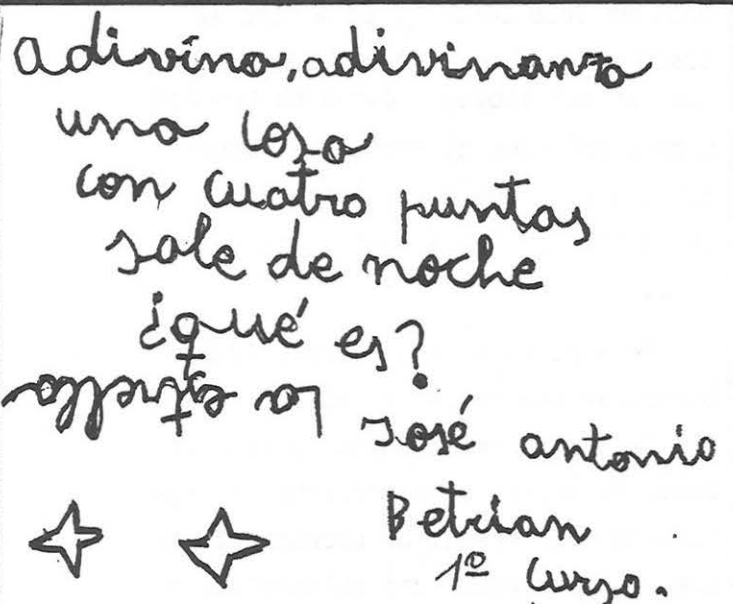 adivino, adivinanza
una cosa
con cuatro puntas
sale de noche
¿qué es?
la estrella
José antonio
Betrian
1º curso.